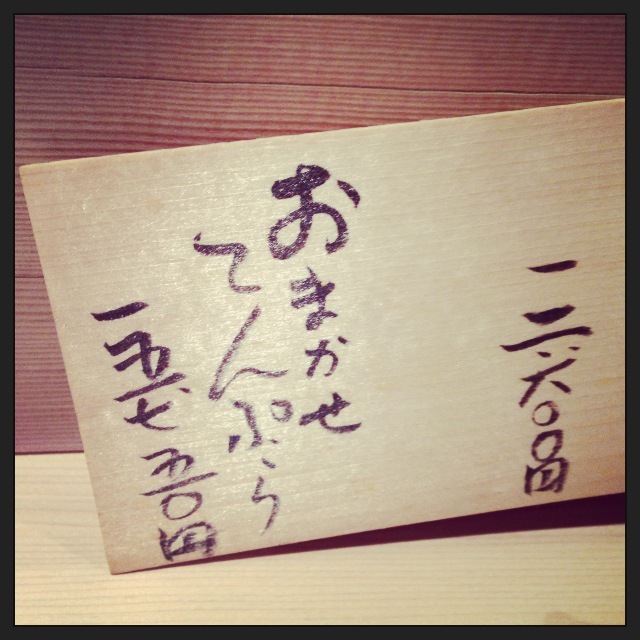 一二、六〇〇円
おまかせ
てんぷら
一五、七五〇円